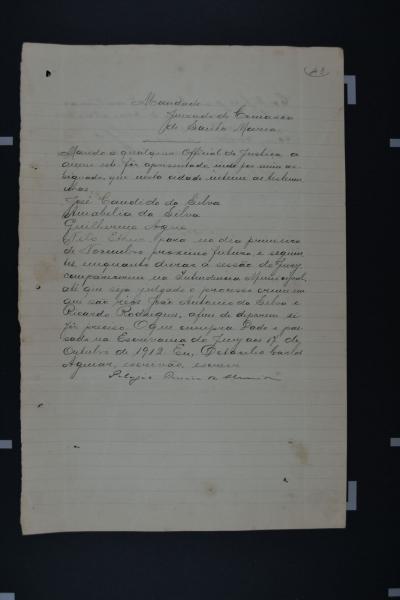 43
Mandado
Juizado da Comarca
de Santa Maria
Mando a qualquer Official de Justiça a
quem este fôr apresentado, indo por mim as-
signado, que nesta cidade intime as testemu-
nhas
José Candido da Silva
Amabilia da Silva
Guilherme
para no dia primeiro
de Novembro proximo futuro e seguin-
tes enquanto durar a sessão do Jury,
comparecerem na Intendencia Municipal,
até que seja julgado o processo crime em
que são réos João Antonio da Silva e
Ricardo Rodrigues, afim de deporem si
fôr preciso. O que cumpra. Dado e pas-
sado na Escrivania do Jury aos 17 de
Outubro de 1912. Eu, Octavilio Carlos
Aguiar, escrivão, escrevi